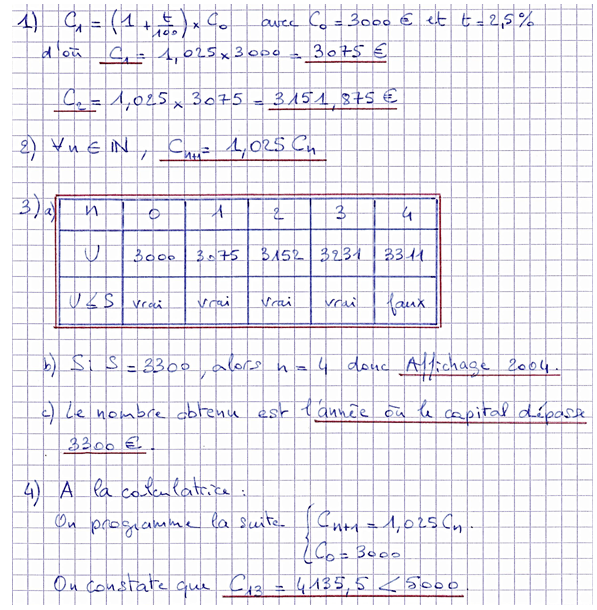 1) C₁ = (1 + t/100) × C₀ avec C₀ = 3000 € et t = 2,5%
d'où C₁ = 1,025 × 3000 = 3075 €
C₂ = 1,025 × 3075 = 3151,875 €
2) ∀n ∈ IN, Cₙ₊₁ = 1,025 Cₙ
3) a) n 0 1 2 3 4
U 3000 3075 3152 3231 3311
U ≤ S vrai vrai vrai vrai faux
b) Si S = 3300, alors n = 4 donc Affichage 2004.
c) Le nombre obtenu est l'année où le capital dépasse
3300 €.
4) A la calculatrice :
On programme la suite { Cₙ₊₁ = 1,025 Cₙ.
C₀ = 3000
On constate que C₁₃ = 4135,5 < 5000.